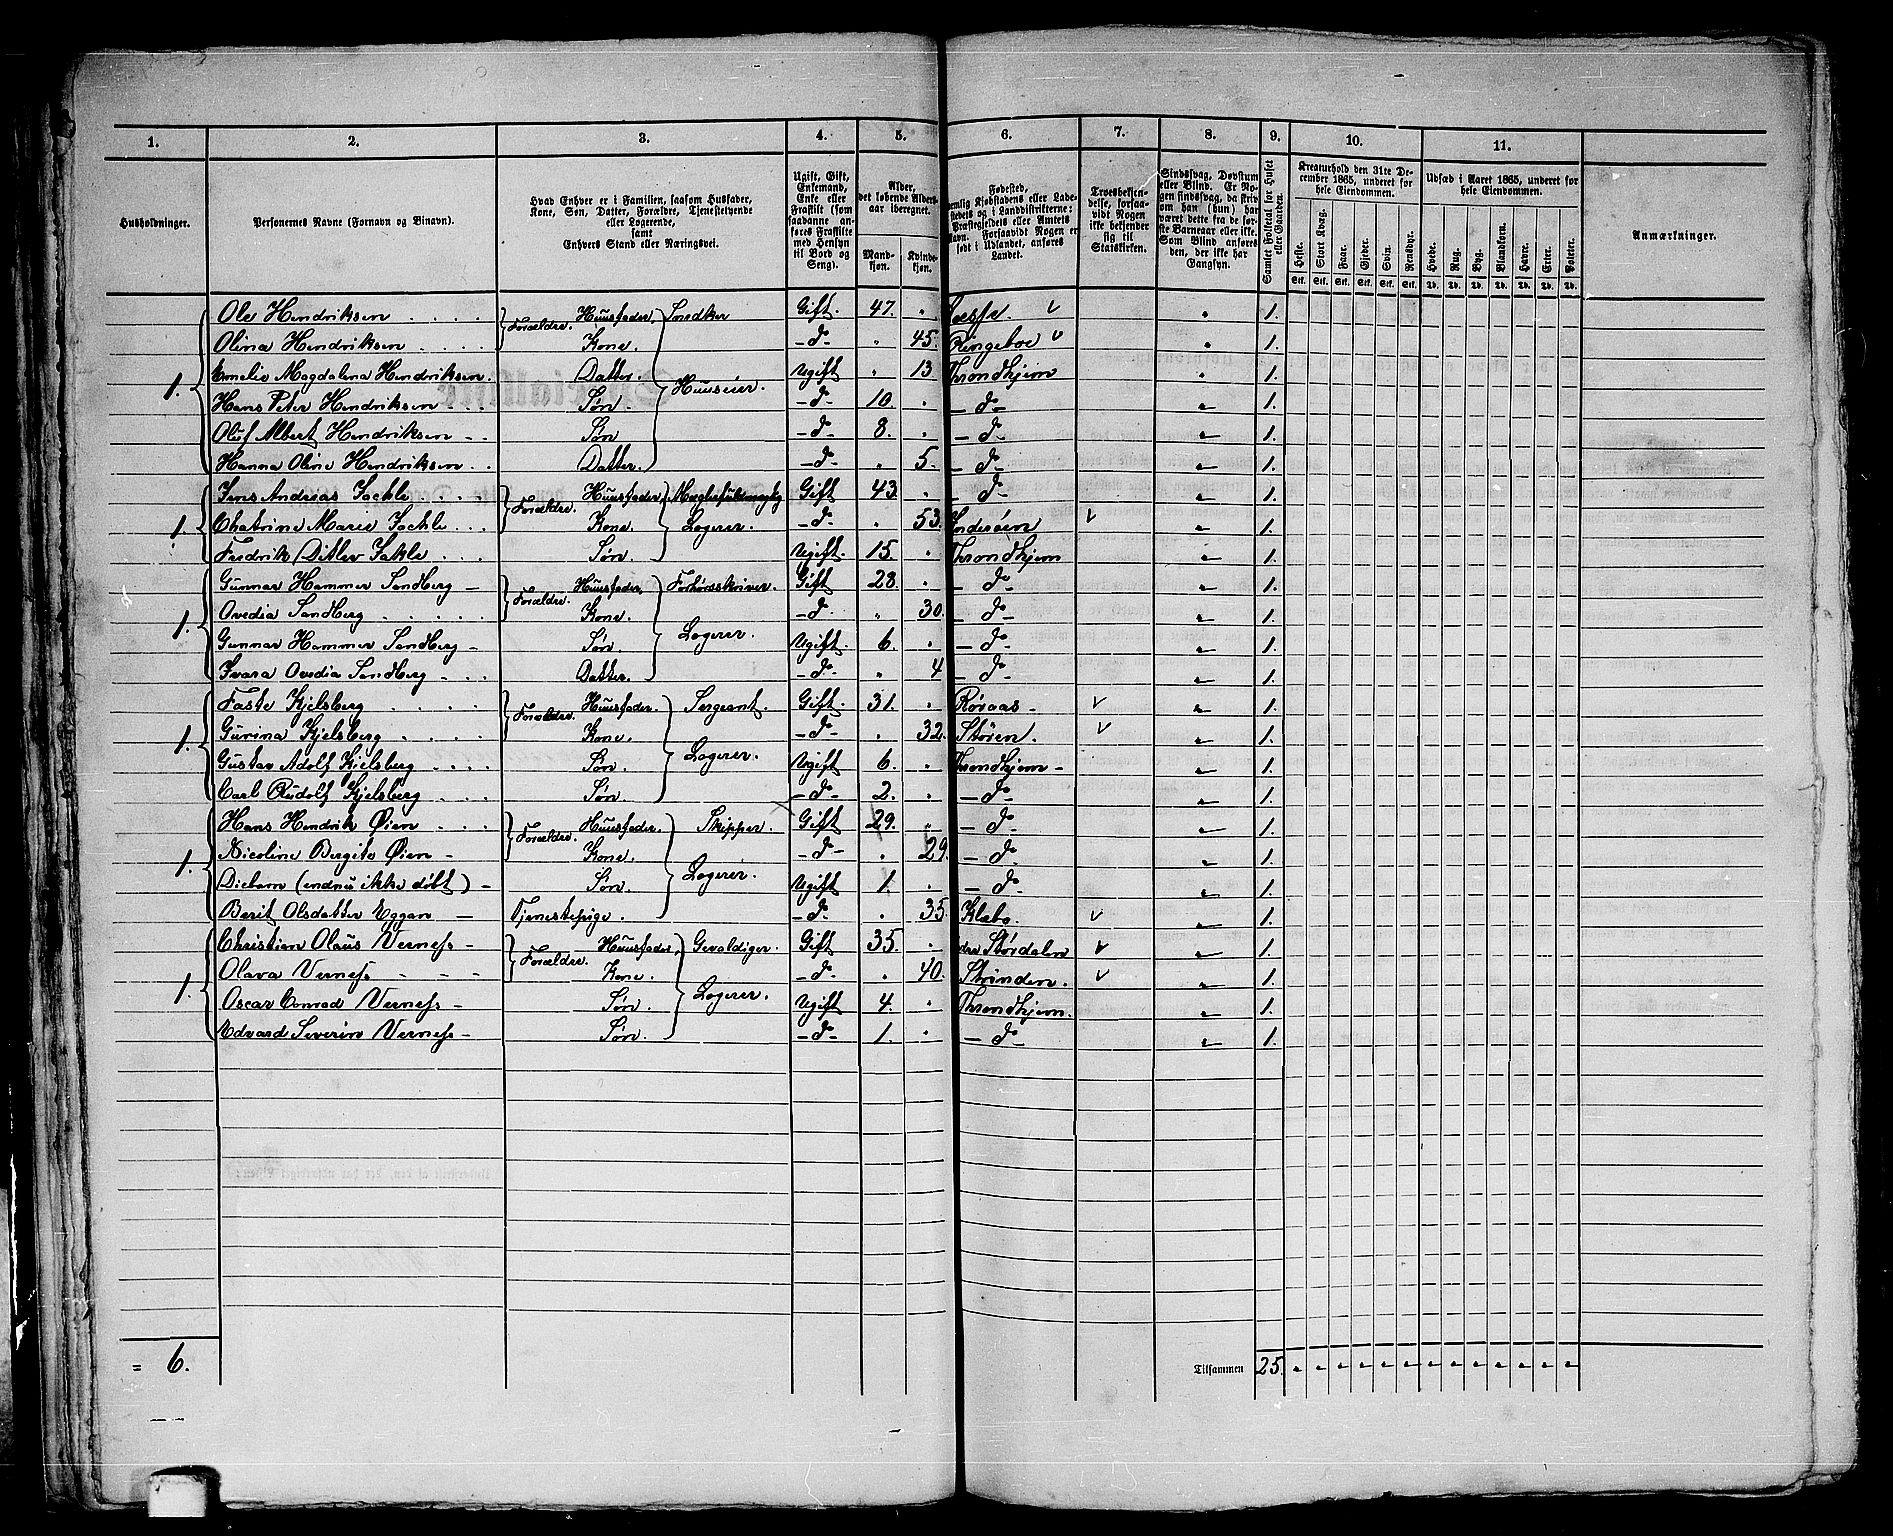 1. 2. 3. 4. 5. 6. 7. 8. 9. 10. 11.
Husholdninger.
Personernes Navne (Fornavn og Binavn).
Hvad Enhver er i Familien, saasom Husfader,
Kone, Søn, Datter, Forældre, Tjenestetyende
eller Logerende,
samt
Enhvers Stand eller Næringsvei.
Ugift, Gift,
Enkemand,
Enke eller
Fraskilt (som
saadanne an-
føres Fraskilte
med Hensyn
til Bord og
Seng).
Alder,
det løbende Alders-
aar iberegnet.
Mand-
kjøn.
Kvinde-
kjøn.
Fødested,
Kjøbstadens eller Lade-
stedets og i Landdistrikterne:
Præstegjeldets eller Amtets
Navn. Forsaavidt Nogen er
født i Udlandet, anføres
Landet.
Troesbekjen-
delse, forsaa-
vidt Nogen
ikke bekjender
sig til
Statskirken.
Sindssvag, Døvstum
eller Blind. Er No-
gen sindssvag, da skriv
om han (hun) har
været dette fra de før-
ste Barneaar eller ikke.
Som Blind anføres
den, der ikke har
Gangsyn.
Samlet Folketal for Huset
eller Gaarden.
Kreaturhold den 31te De-
cember 1865, underet for
hele Eiendommen.
Heste. Stort Kvæg. Faar. Gjeder. Svin. Rensdyr.
Stk. Stk. Stk. Stk. Stk. Stk.
Udsæd i Aaret 1865, underet for
hele Eiendommen.
Hvede. Rug. Byg. Blandkorn. Havre. Erter. Poteter.
Td. Td. Td. Td. Td. Td. Td.
Anmærkninger.
Ole Hendriksen Forældre. Huusfader, Gift. 47. 1.
Olina Hendriksen Kone. -d- 45. Ringeboe 1.
1. Amelie Magdalena Hendriksen. Datter. Huuseier. Ugift 13 Throndhjem 1.
Hans Peter Hendriksen Søn. -d- 10. -d- 1.
Oluf Albert Hendriksen Søn -d- 8. -d- 1.
Hanna Oline Hendriksen Datter. -d- 5. -d- 1.
Jens Andreas Forældre. Huusfader, Gift 43. -d- 1.
1. Chatrine Marie Kone. Logerer. -d- 53. Inderøen 1.
Fredrik Ditlev Søn. Ugift. 15. Throndhjem 1.
Gunnar Hammer Sandberg Forældre. Huusfader, Forhørsskriver. Gift 28. -d- 1.
Ovedia Sandberg Kone. -d- 30. -d- 1.
1. Gunnar Hammer Sandberg Søn. Logerer. Ugift. 6. -d- 1.
Ovedia Sandberg Datter. -d- 4 -d- 1.
Faste Kjelsberg Forældre. Huusfader. Sergeant. Gift. 31. Røraas 1.
1. Gurina Kjelsberg Kone. -d- 32. Støren. 1.
Gustav Adolf Kjelsberg Søn. Logerer. Ugift 6. Throndhjem 1.
Carl Rudolf Kjelsberg Søn. -d- 2. -d- 1.
Hans Hendrik Øien Forældre. Huusfader. Skipper. Gift 29. -d- 1.
1. Nicoline Bergite Øien Kone. -d- 29. -d- 1.
Diebarn (endnu ikke døbt) Søn. Logerer. Ugift 1. -d- 1.
Berit Olsdatter Eggan Tjenestepige. -d- 35. Klæbo. 1.
Christian Olaus Verness Forældre. Huusfader, Gevaldiger. Gift 35. Størdalen 1.
Olava Verness Kone. -d- 40. Strinden. 1.
1. Oscar Conrad Verness Søn. Logerer. Ugift 4. Throndhjem. 1.
Edvard Severin Verness Søn. -d- 1. -d- 1.
= 6. Tilsammen 25.